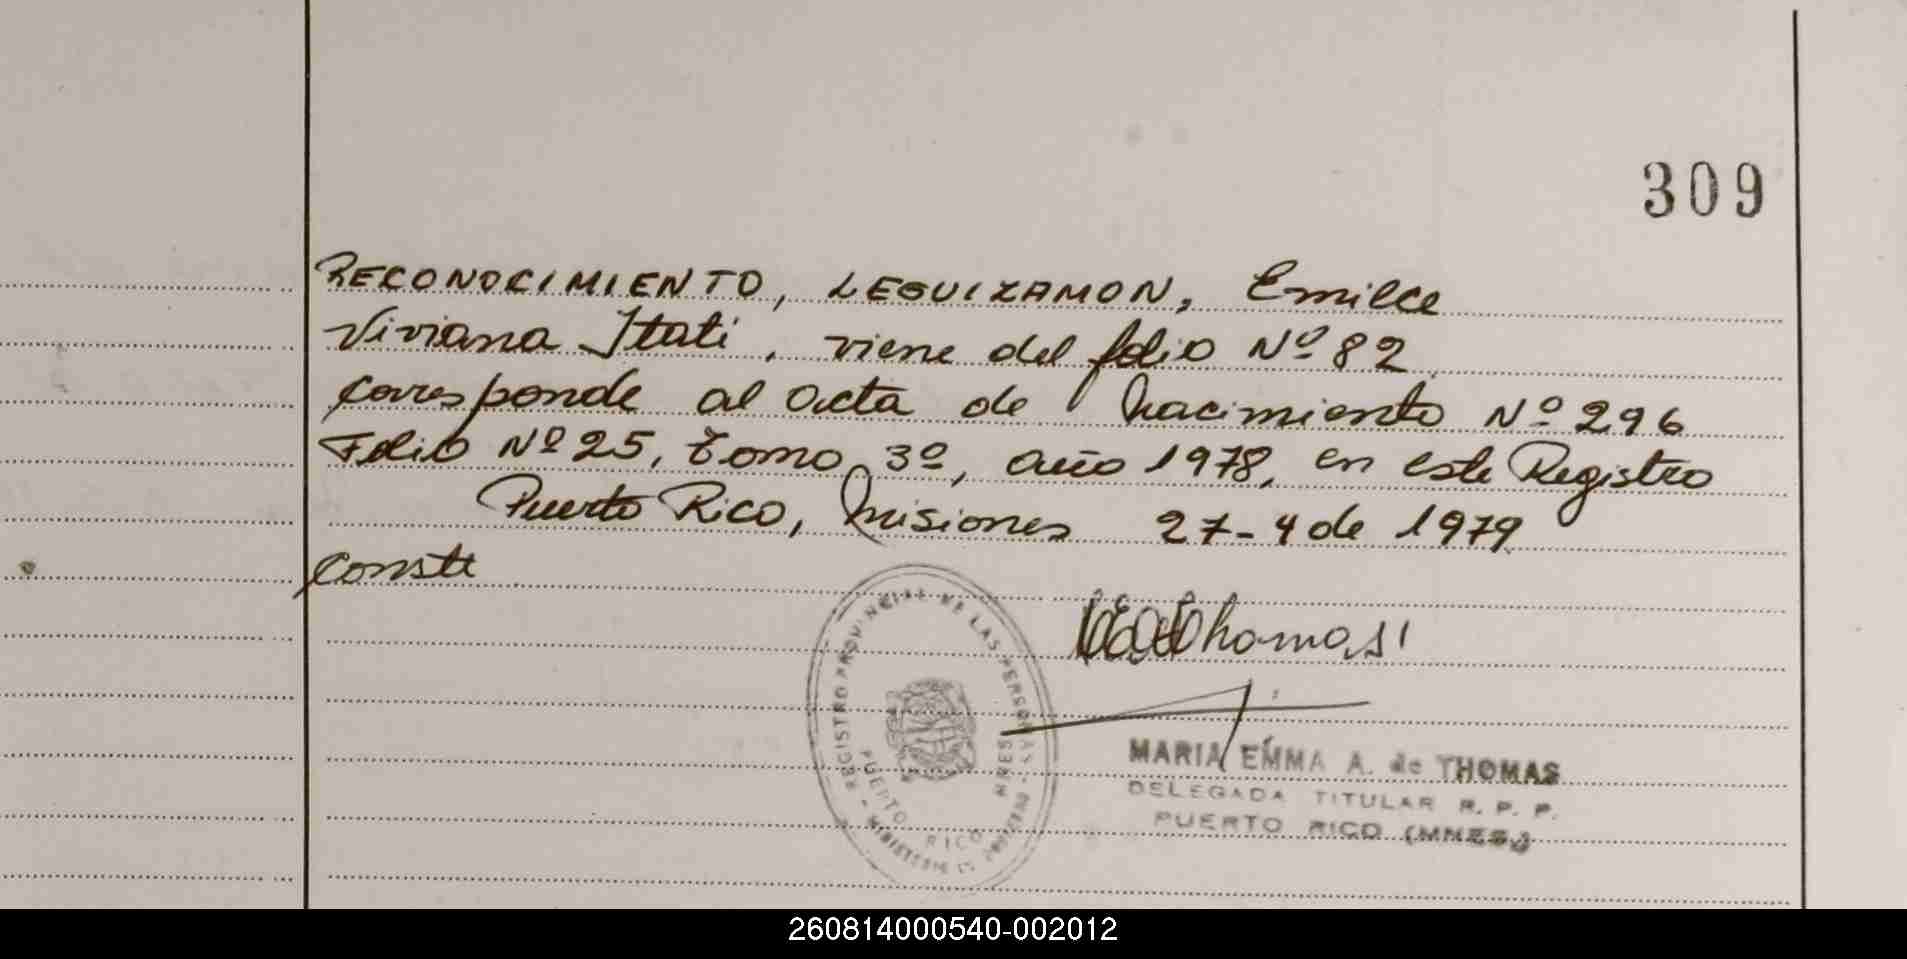 309
RECONOCIMIENTO, LEGUIZAMON, Emilce
Viviana Itati, viene del folio Nº 82
corresponde al acta de Nacimiento Nº 296
Folio Nº 25, tomo 3º, año 1978, en este Registro
Puerto Rico, Misiones 27-4 de 1979
Conste
REGISTRO PROVINCIAL DE LAS PERSONAS
PUERTO RICO MNES
MARIA EMMA A. de THOMAS
DELEGADA TITULAR R. P. P.
PUERTO RICO (MNES.)
260814000540-002012